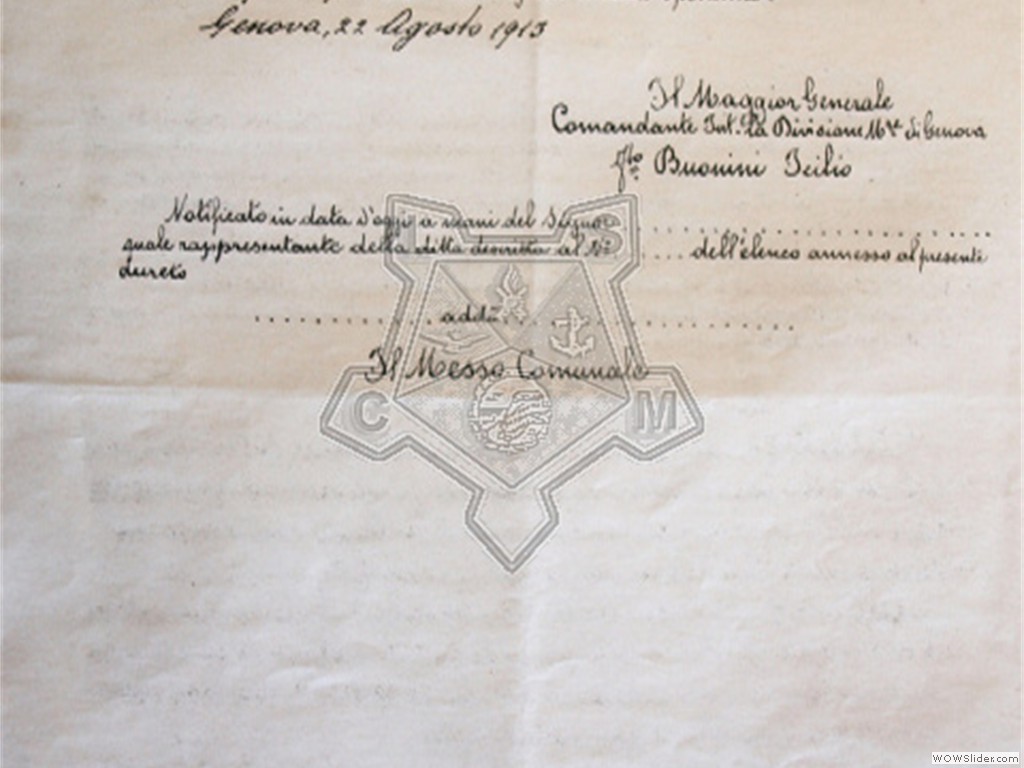 Genova, 22 Agosto 1913
Il Maggior Generale
Comandante Int. la Divisione Mre di Genova
fto Buonini Icilio
Notificato in data d'oggi a mani del Signor ..............................
quale rappresentante della ditta descritta al N° .... dell'elenco annesso al presente
decreto
.................. addì ..............................
Il Messo Comunale
S
C M
WOWSlider.com